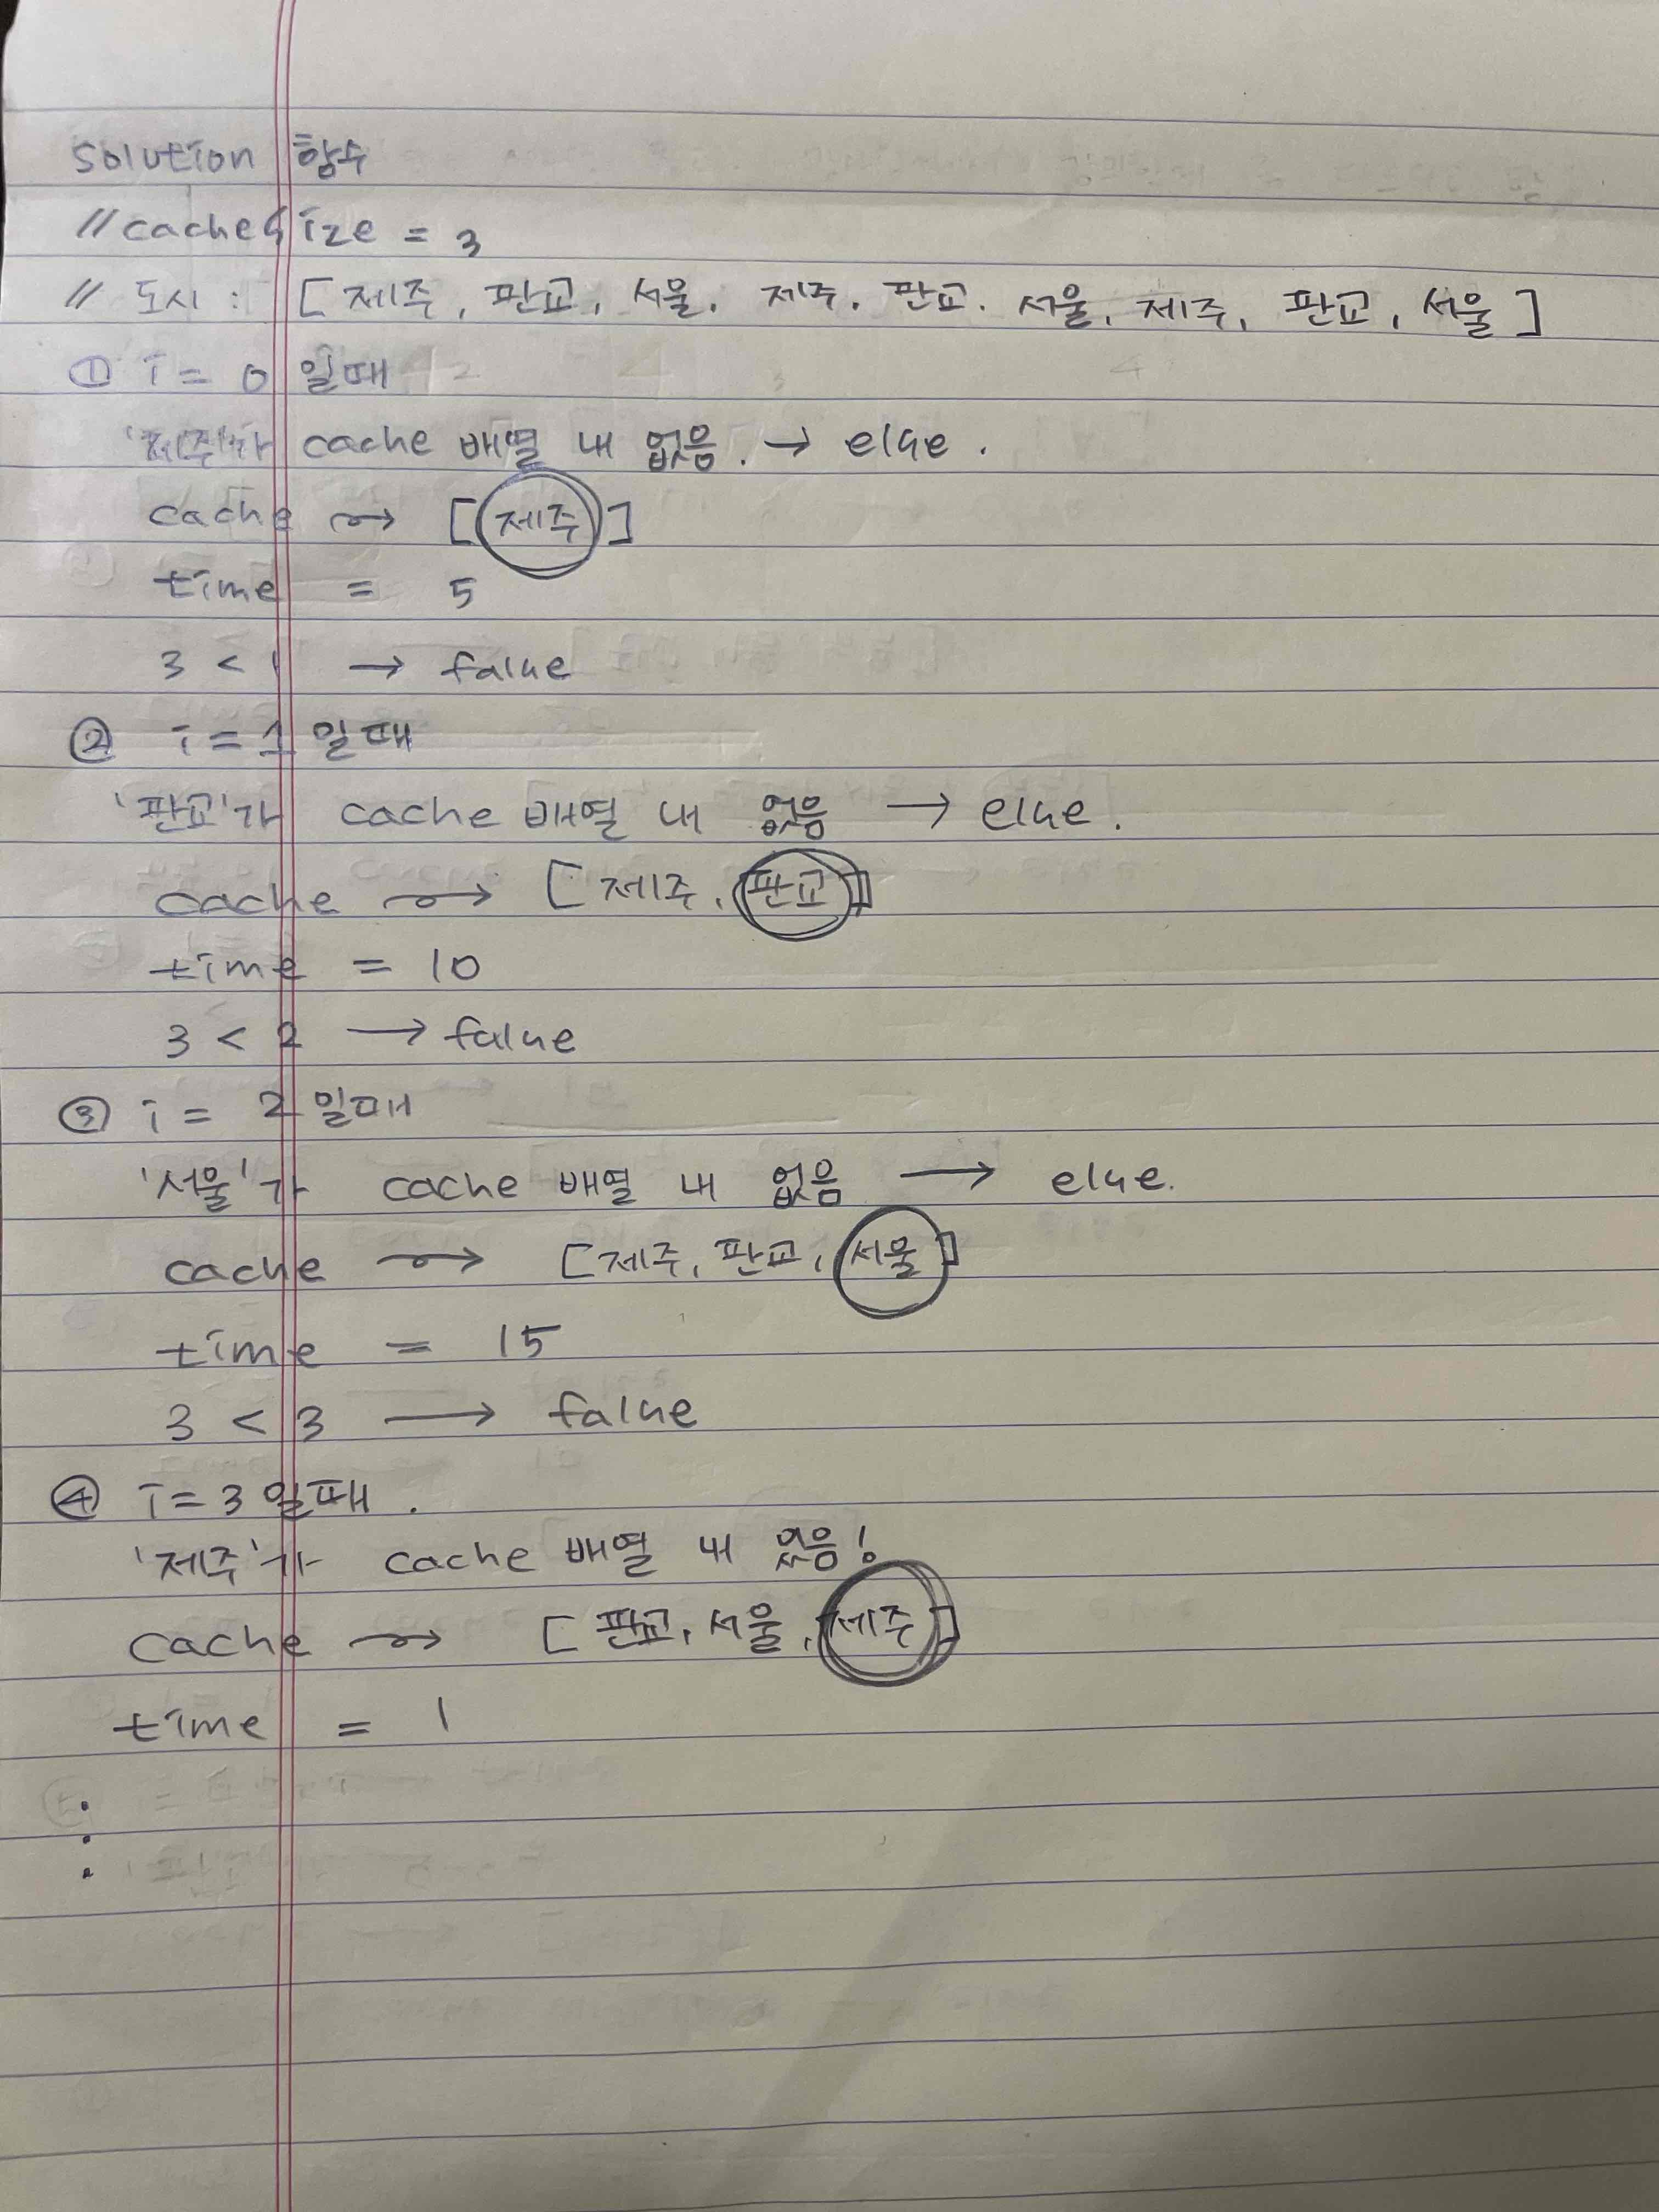 solution 함수
// cacheSize = 3
// 도시 : [ 제주, 판교, 서울, 제주, 판교, 서울, 제주, 판교, 서울 ]
① i = 0 일때
'제주'가 cache 배열 내 없음. → else.
cache ↝ [ 제주 ]
time = 5
3 < 1 → false
② i = 1 일때
'판교'가 cache 배열 내 없음 → else.
cache ↝ [ 제주, 판교 ]
time = 10
3 < 2 → false
③ i = 2 일때
'서울'가 cache 배열 내 없음 → else.
cache ↝ [ 제주, 판교, 서울 ]
time = 15
3 < 3 → false
④ i = 3 일때.
'제주'가 cache 배열 내 있음!
cache ↝ [ 판교, 서울, 제주 ]
time = 1